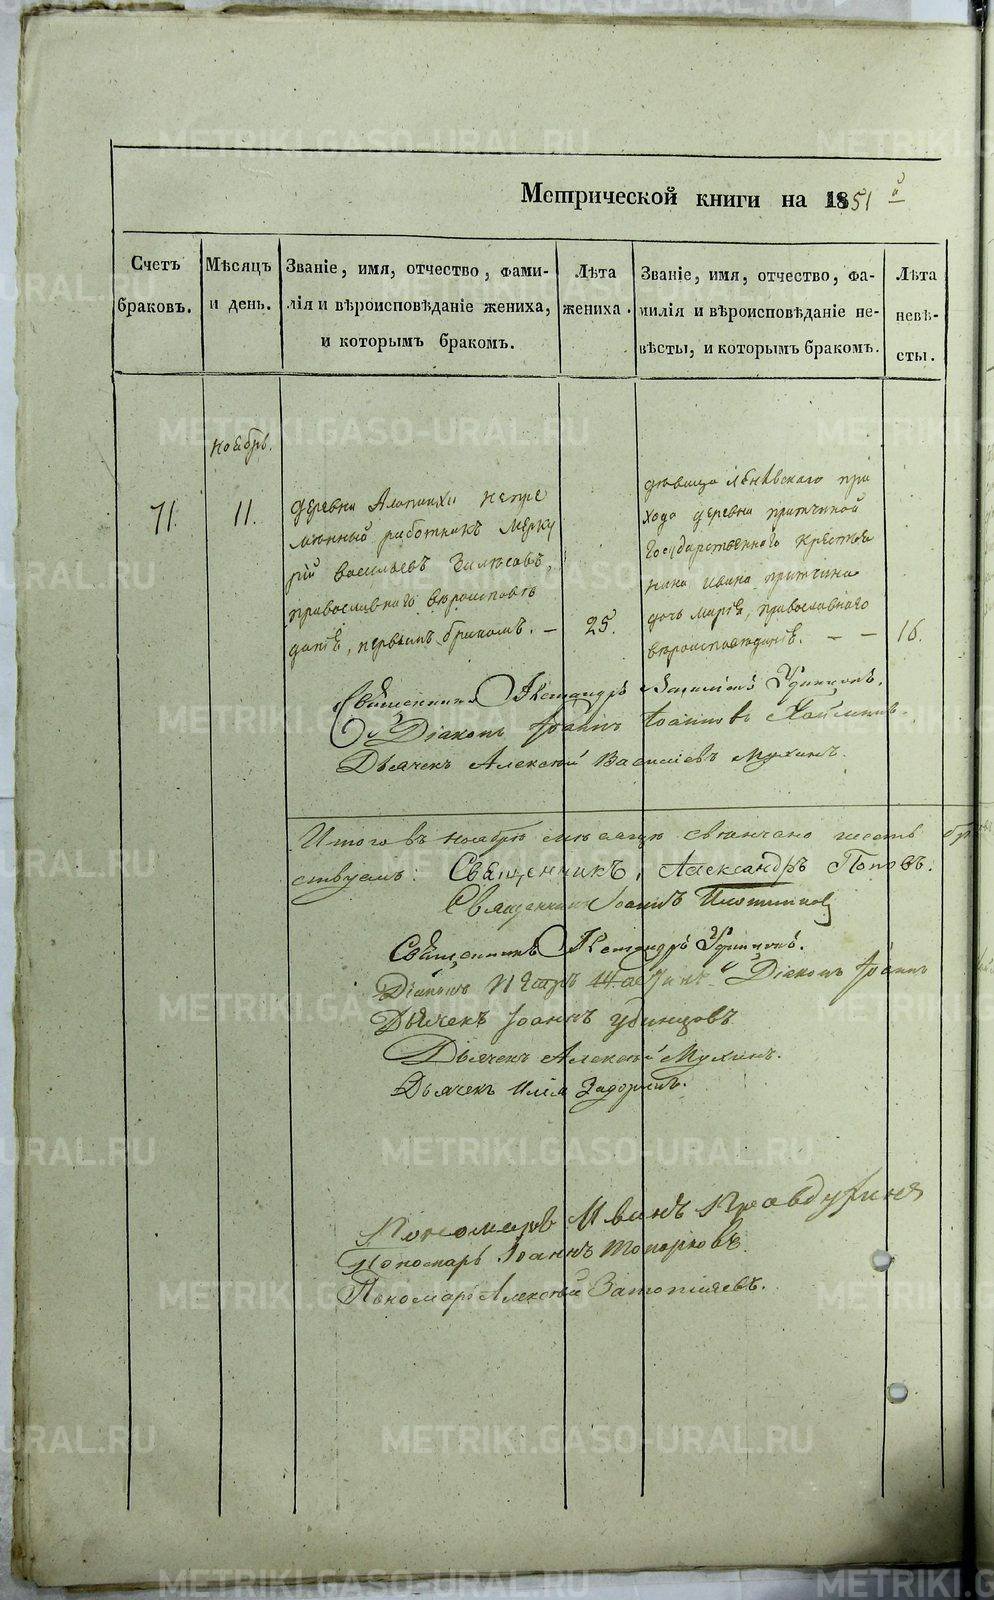 Метрической книги на 1851 й
Счетъ браковъ.
Мѣсяцъ и день.
Званіе, имя, отчество, фами-
лія и вѣроисповѣданіе жениха,
и которымъ бракомъ.
Лѣта
жениха.
Званіе, имя, отчество, фа-
милія и вѣроисповѣданіе не-
вѣсты, и которымъ бракомъ.
Лѣта
невѣ-
сты.
Ноябрь.
71.
11.
деревни Алапаихи непре
мѣнный работникъ Мерку
рій Васильевъ
православнаго вѣроисповѣ
данія, первымъ бракомъ. —
25.
дѣвица при
хода деревни
Государственнаго крестья
нина Ивана
дочь Марія, православнаго
вѣроисповѣданія. — —
16.
Священникъ Александръ Удинцовъ.
Діаконъ Іоаннъ Іоанновъ
Дьячекъ Алексѣй Василіевъ Мухинъ.
Итого въ ноябрѣ мѣсяцѣ свѣнчано шесть
ствуемъ: Священникъ, Александръ Поповъ.
Священникъ Іоаннъ Плотниковъ
Священникъ Александръ Удинцовъ.
Діаконъ Петръ Діаконъ Іоаннъ
Дьячекъ Іоаннъ Удинцовъ
Дьячекъ Алексѣй Мухинъ.
Дьячекъ Илія Задоринъ.
Пономарь Иванъ Правдухинъ
Пономарь Іоаннъ Топорковъ.
Пономарь Алексѣй Затопляевъ.
METRIKI.GASO-URAL.RU